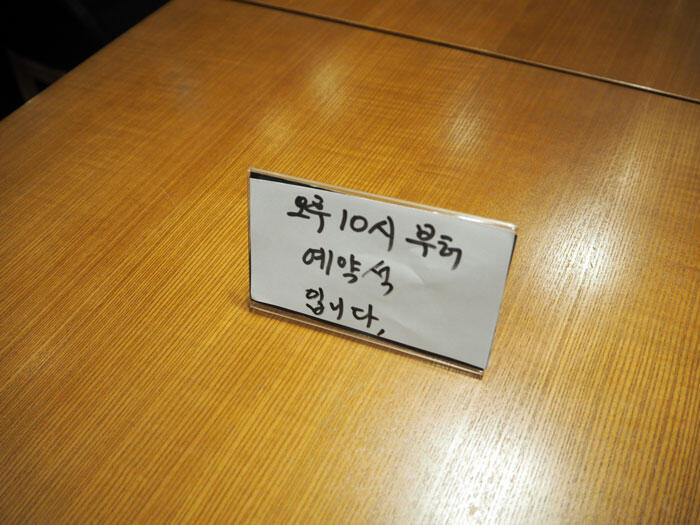 오후 10시 부터
예약석
입니다.